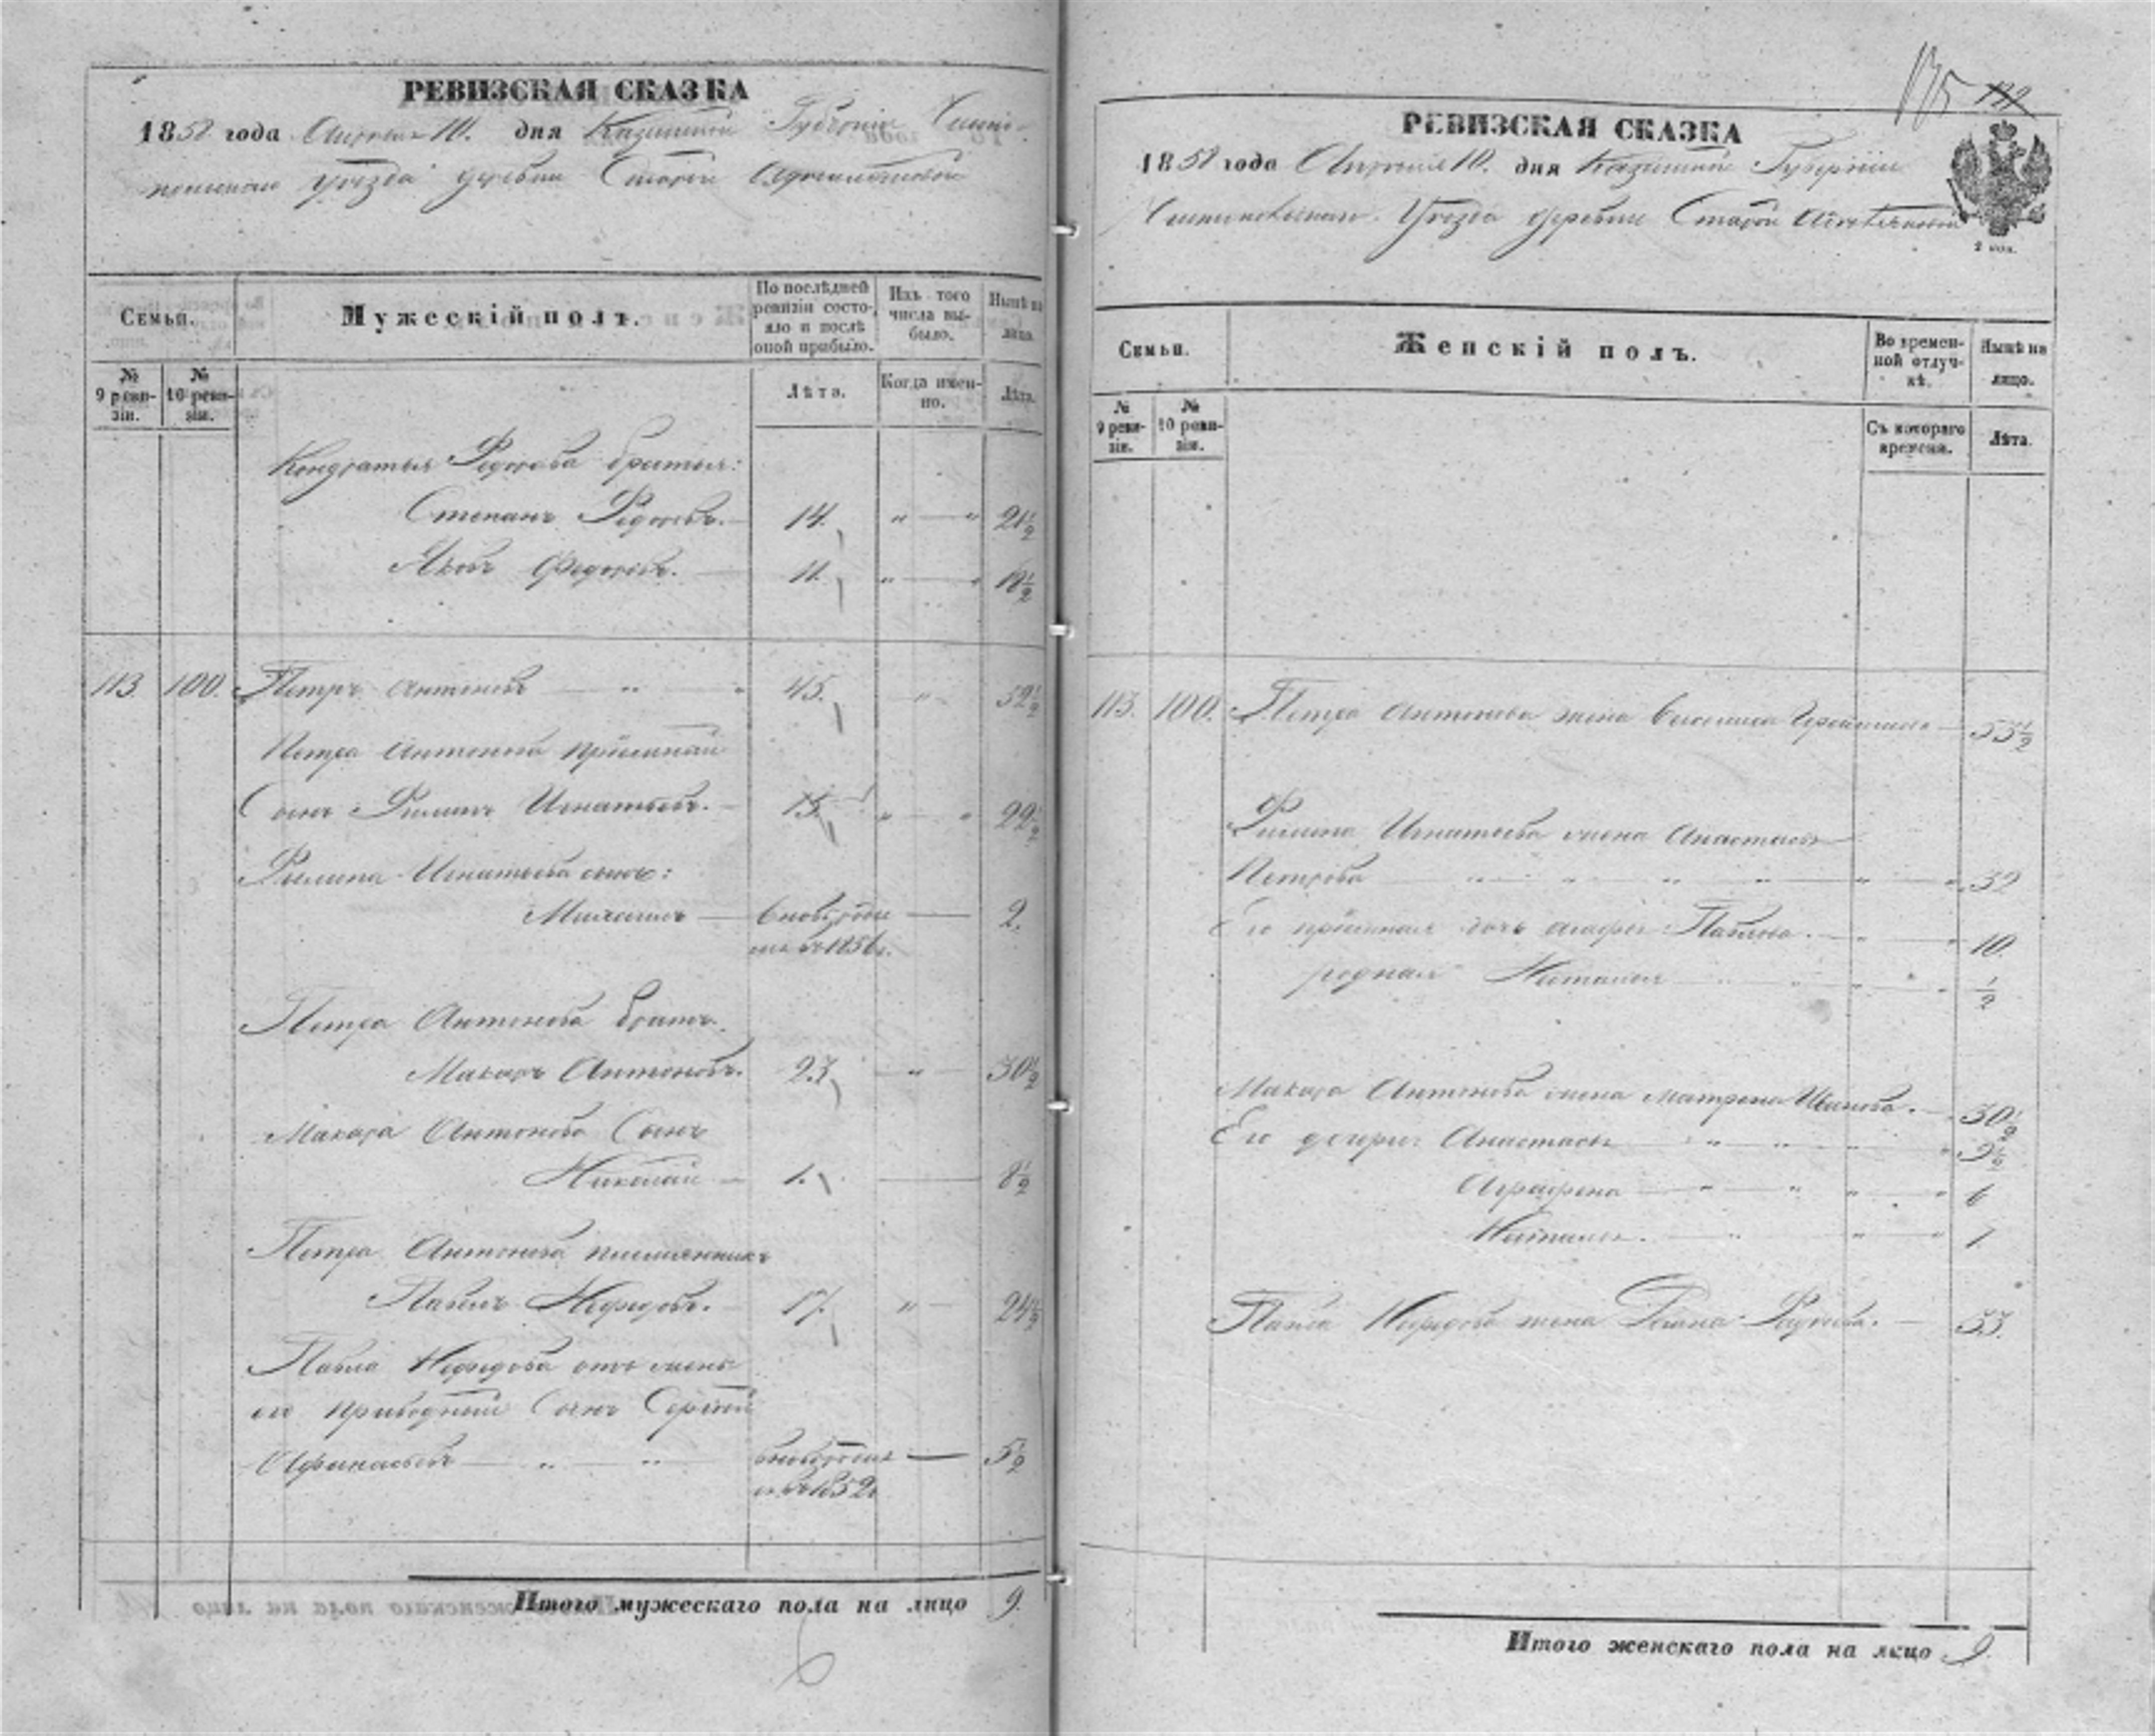 РЕВИЗСКАЯ СКАЗКА
1858 года Апреля 10. дня Казанской Губернiи Чисто-
польскаго Уезда деревни Старой
Семьи.
Мужескiй полъ.
По послѣдней ревизiи состо-
яло и послѣ
оной прибыло.
Изъ того
числа вы-
было.
Нынѣ на
лицо.
№
9 реви-
зiи.
№
10 реви-
зiи.
Лѣта.
Когда имен-
но.
Лѣта.
Кондратья Федорова братья:
Степанъ Федоровъ. 14. 21½
Яковъ Федоровъ. 11. 18½
113. 100. Петръ Антоновъ 45. 52½
Петра Антонова прiемный
Сынъ Филипъ Игнатьевъ. 15. 22½
Филипа Игнатьева сынъ:
Михаилъ вновь рож- 2.
въ 1856 г.
Петра Антонова братъ.
Макаръ Антоновъ. 23. 30½
Макара Антонова Сынъ
Николай 1. 8½
Петра Антонова племянникъ
Павелъ Нефедовъ. 17. 24½
Павла Нефедова отъ жены
его приводный Сынъ Сергей
Афанасьевъ 5½
въ 1852
Итого мужескаго пола на лицо 9.
175
РЕВИЗСКАЯ СКАЗКА
1858 года Апреля 10. дня Казанской Губернiи
Чистопольскаго Уезда деревни Старой
2 коп.
Семьи.
Женскiй полъ.
Во времен-
ной отлуч-
кѣ.
Нынѣ на
лицо.
№
9 реви-
зiи.
№
10 реви-
зiи.
Съ котораго
времени.
Лѣта.
113. 100. Петра Антонова жена Василиса 53½
Филипа Игнатьева жена Анастасья
Петрова 32
Его прiемная дочь Павлова. 10
родная Наталья ½
Макара Антонова жена Матрена Иванова. 30½
Его дочери: Анастасья
Аграфена 6
Наталья. 1
Павла Нефедова жена 33.
Итого женскаго пола на лицо 9.